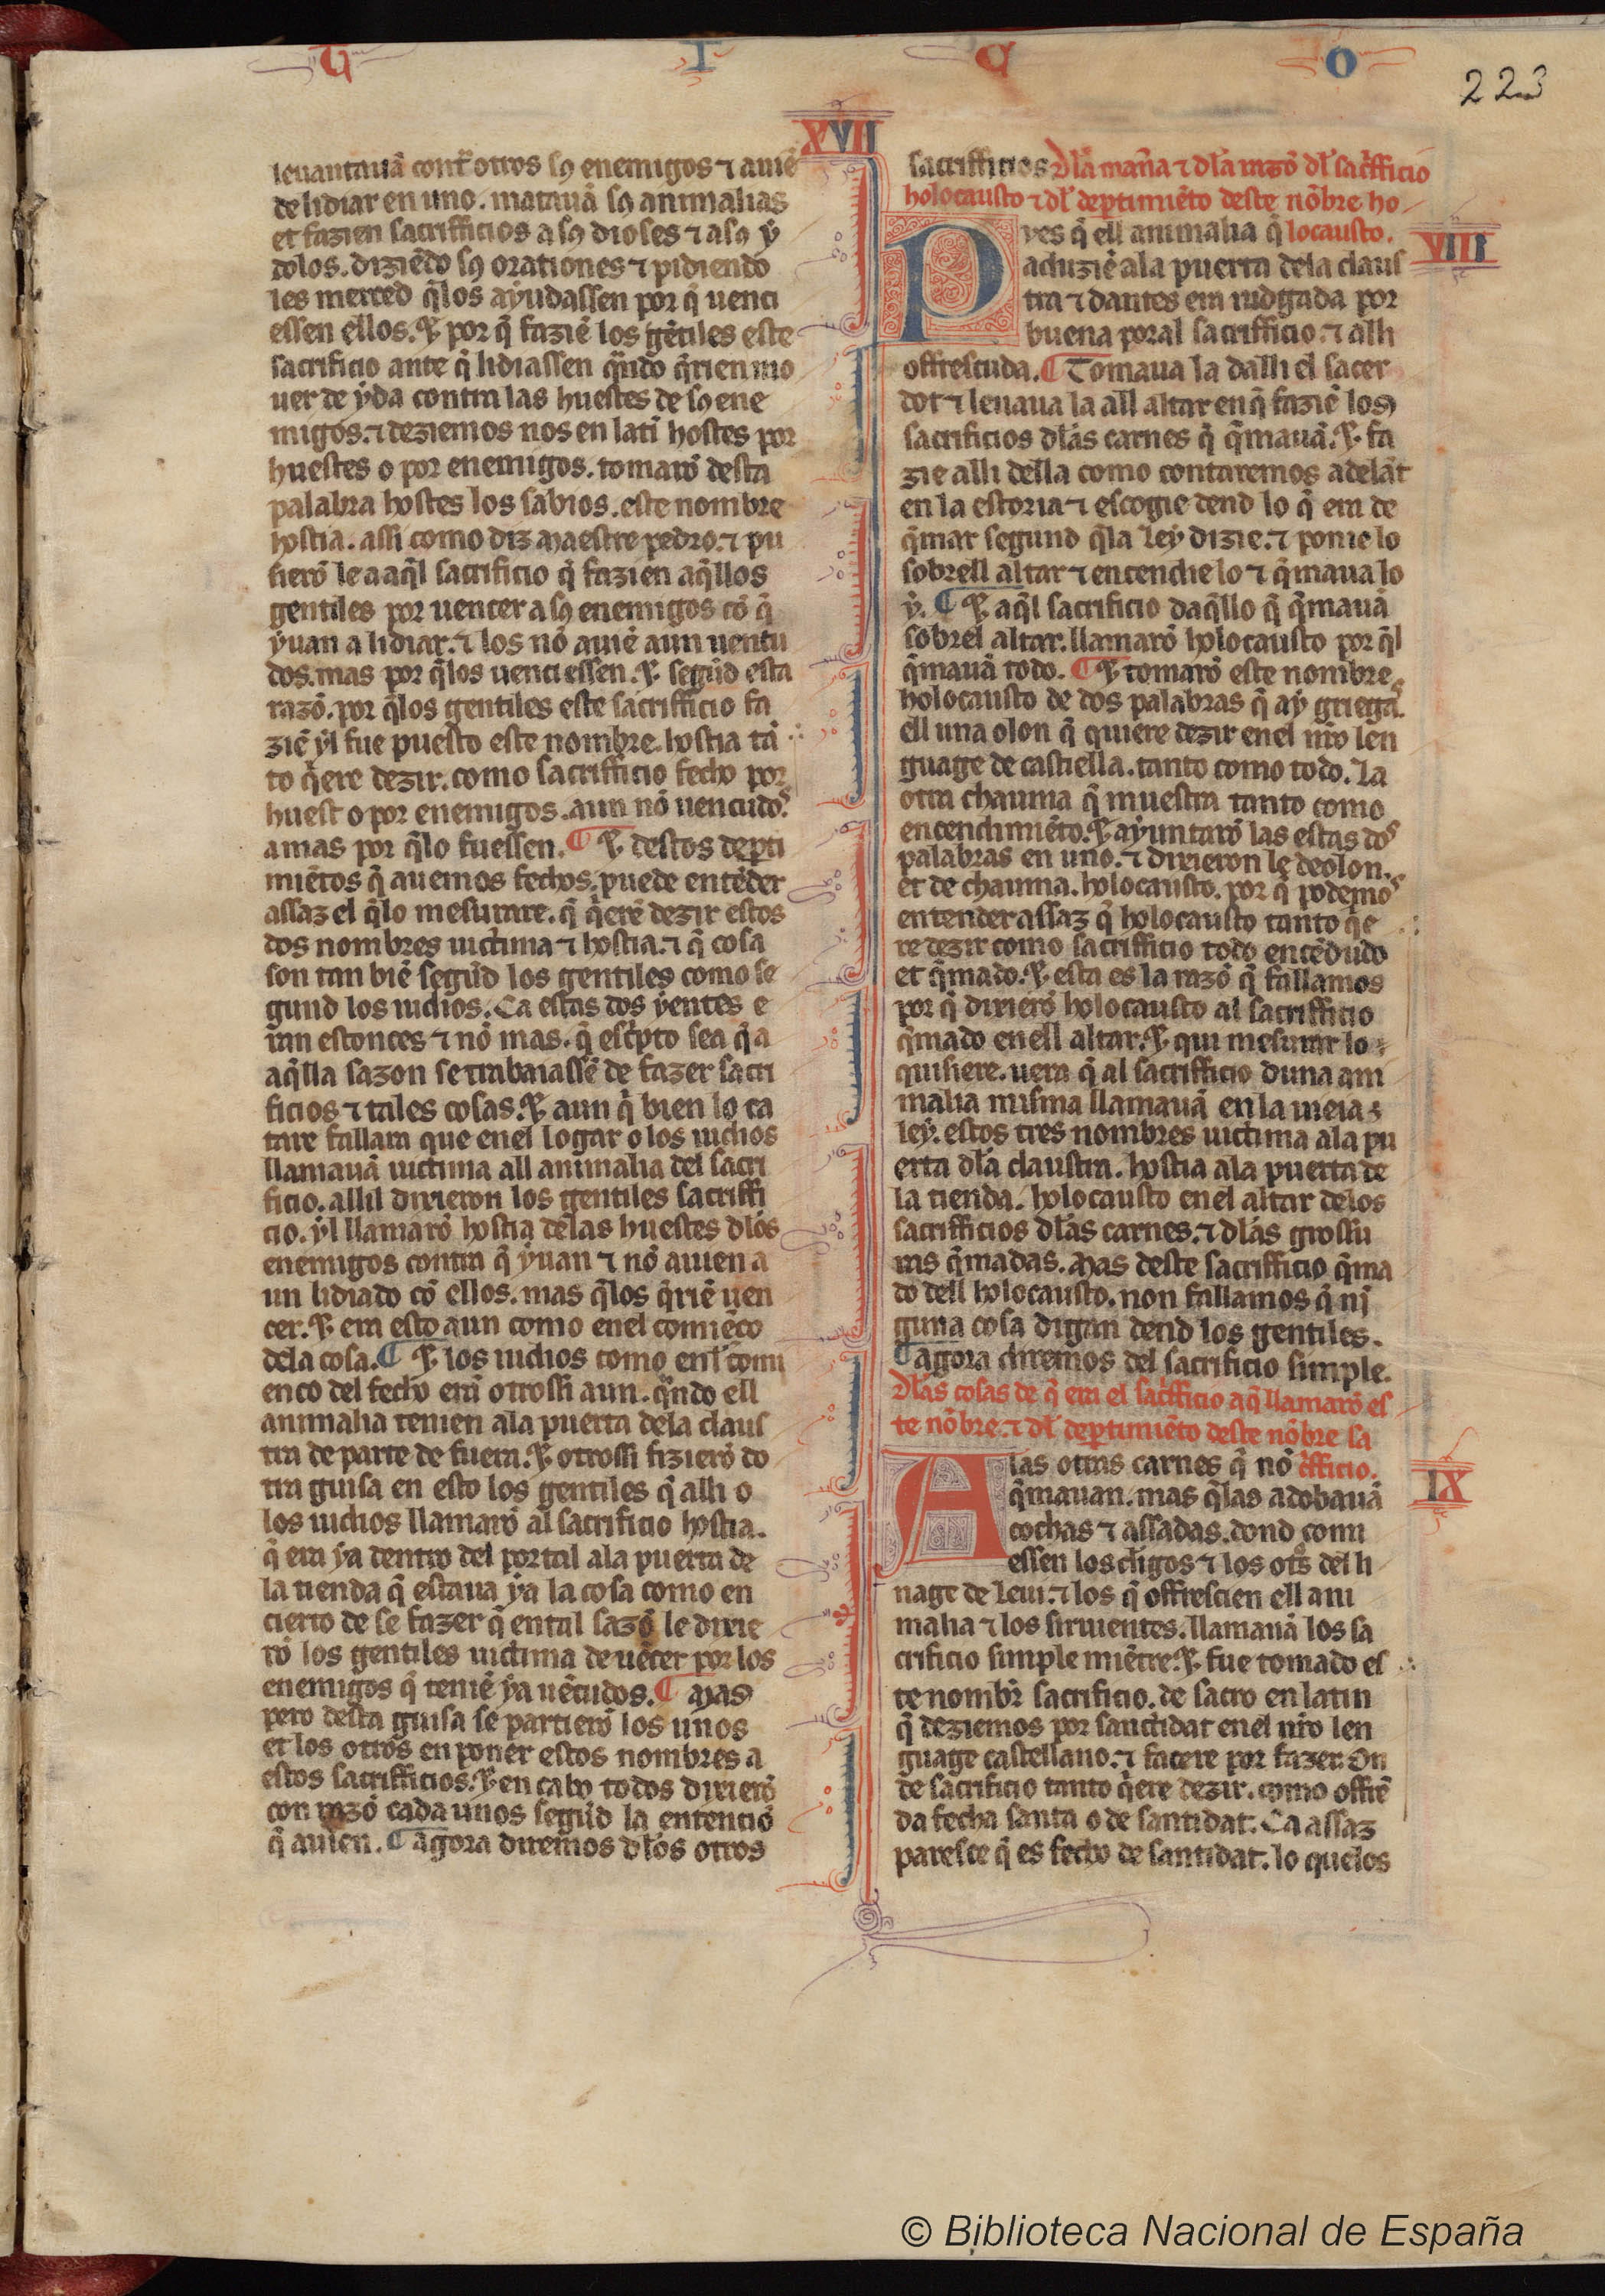 U I C O
223
XVII
leuantauã contͣ otros sꝯ enemigos ⁊ auiẽ
de lidiar en uno. matauã sꝯ animalias
et fazien sacrifficios a sꝯ dioses ⁊ a sꝯ ẏ
dolos. diziẽdo sꝯ orationes ⁊ pidiendo
les merced q̃los aẏudassen por q̃ uenci
essen ellos. ⁊ por q̃ faziẽ los gẽtiles este
sacrificio ante q̃ lidiassen q̃ndo q̃rien mo
uer de ẏda contra las huestes de sꝯ ene
migos. ⁊ deziemos nos en latĩ hostes por
huestes o por enemigos. tomarõ desta
palabra hostes los sabios. este nombre
hostia. assi como diz maestre pedro. ⁊ pu
sierõ le a aq̃l sacrificio q̃ fazien aq̃llos
gentiles por uencer a sꝯ enemigos cõ q̃
ẏuan a lidiar. ⁊ los nõ auiẽ aun uencu
dos. mas por q̃los uenciessen. ⁊ segũd esta
razõ. por q̃los gentiles este sacrifficio fa
ziẽ ẏl fue puesto este nombre. hostia tã
to q̃ere dezir. como sacrifficio fecho por
huest o por enemigos. aun nõ uencudoˢ.
amas por q̃lo fuessen. ¶ ⁊ destos deꝑti
miẽtos q̃ auemos fechos. puede entẽder
assaz el q̃lo mesurare. q̃ q̃erẽ dezir estos
dos nombres uictima ⁊ hostia. ⁊ q̃ cosa
son tan biẽ segũd los gentiles como se
gund los iudios. Ca estas dos ẏentes e
ran estonces ⁊ nõ mas. q̃ esc̃pto sea q̃ a
aq̃lla sazon se trabaiassẽ de fazer sacri
ficios ⁊ tales cosas. ⁊ aun q̃ bien lo ca
tare fallara que enel logar o los iudios
llamauã uictima all animalia del sacri
ficio. allil dixieron los gentiles sacriffi
cio. ẏl llamarõ hostia delas huestes dlos
enemigos contra q̃ ẏuan ⁊ nõ auien a
un lidiado cõ ellos. mas q̃los q̃riẽ uen
cer. ⁊ era esto aun como enel comiẽço
dela cosa. ¶ ⁊ los iudios como enl comi
enço del fecho erã otrossi aun. q̃ndo ell
animalia tenien ala puerta dela claus
tra de parte de fuera. ⁊ otrossi fizierõ do
tra guisa en esto los gentiles q̃ alli o
los iudios llamarõ al sacrificio hostia.
q̃ era ẏa dentro del portal ala puerta de
la tienda q̃ estaua ẏa la cosa como en
cierto de se fazer q̃ en tal sazõ le dixie
rõ los gentiles uictima de uẽcer por los
enemigos q̃ teniẽ ẏa uẽcudos. ¶ Mas
pero desta guisa se partierõ los unos
et los otros en poner estos nombres a
estos sacrifficios. ⁊ en cabo todos dixierõ
con razõ cada unos segũd la entenciõ
q̃ auien. ¶ agora diremos dlos otros
sacrifficios Dla maña ⁊ dla razõ dl sac̃fficio
holocausto ⁊ dl deꝑtimiẽto deste nõbre ho
Pves q̃ ell animalia q̃ locausto. VIII
aduziẽ ala puerta dela claus
tra ⁊ dantes era iudgada por
buena poral sacrifficio. ⁊ alli
offrescuda. ¶ Tomaua la dalli el sacer
dot ⁊ leuaua la all altar en q̃ faziẽ los
sacrificios dlas carnes q̃ q̃mauã. ⁊ fa
zie alli della como contaremos adelãt
en la estoria ⁊ escogie dend lo q̃ era de
q̃mar segund q̃la leẏ dizie. ⁊ ponie lo
sobrell altar ⁊ encendie lo ⁊ q̃maua lo
ẏ. ¶ ⁊ aq̃l sacrificio daq̃llo q̃ q̃mauã
sobrel altar. llamarõ holocausto por q̃l
q̃mauã todo. ¶ ⁊ tomarõ este nombre
holocausto de dos palabras q̃ aẏ griegaˢ.
ell una olon q̃ quiere dezir enel nr̃o len
guage de castiella. tanto como todo. La
otra chauma q̃ muestra tanto como
encendimiẽto. ⁊ aẏuntarõ las estas doˢ
palabras en uno. ⁊ dixieron le de olon.
et de chauma. holocausto. por q̃ podemoˢ
entender assaz q̃ holocausto tanto q̃e
re dezir como sacrifficio todo encẽdudo
et q̃mado. ⁊ esta es la razõ q̃ fallamos
por q̃ dixierõ holocausto al sacrifficio
q̃mado enell altar. ⁊ qui mesurar lo
quisiere. uera q̃ al sacrifficio duna ani
malia misma llamauã en la uieia
leẏ. estos tres nombres uictima ala pu
erta dla claustra. hostia ala puerta de
la tienda. holocausto enel altar delos
sacrifficios dlas carnes. ⁊ dlas grossu
ras q̃madas. Mas deste sacrifficio q̃ma
do dell holocausto. non fallamos q̃ nĩ
guna cosa digan dend los gentiles.
¶ agora diremos del sacrificio simple.
Dlas cosas de q̃ era el sac̃fficio aq̃ llamarõ es
te nõbre. ⁊ dl deꝑtimiẽto deste nõbre sa
Alas otras carnes q̃ nõ c̃fficio. IX
q̃mauan. mas q̃las adobauã
cochas ⁊ assadas. dond comi
essen los cl̃igos ⁊ los otˢ del li
nage de leui. ⁊ los q̃ offrescien ell ani
malia ⁊ los siruientes. llamauã los sa
crificio simple miẽtre. ⁊ fue tomado es
te nombr̃ sacrificio. de sacro en latin
q̃ deziemos por sanctidat enel nr̃o len
guage castellano. ⁊ facere por fazer. On
de sacrificio tanto q̃ere dezir. como offrẽ
da fecha santa o de santidat. Ca assaz
paresce q̃ es fecho de santidat. lo quelos
© Biblioteca Nacional de España